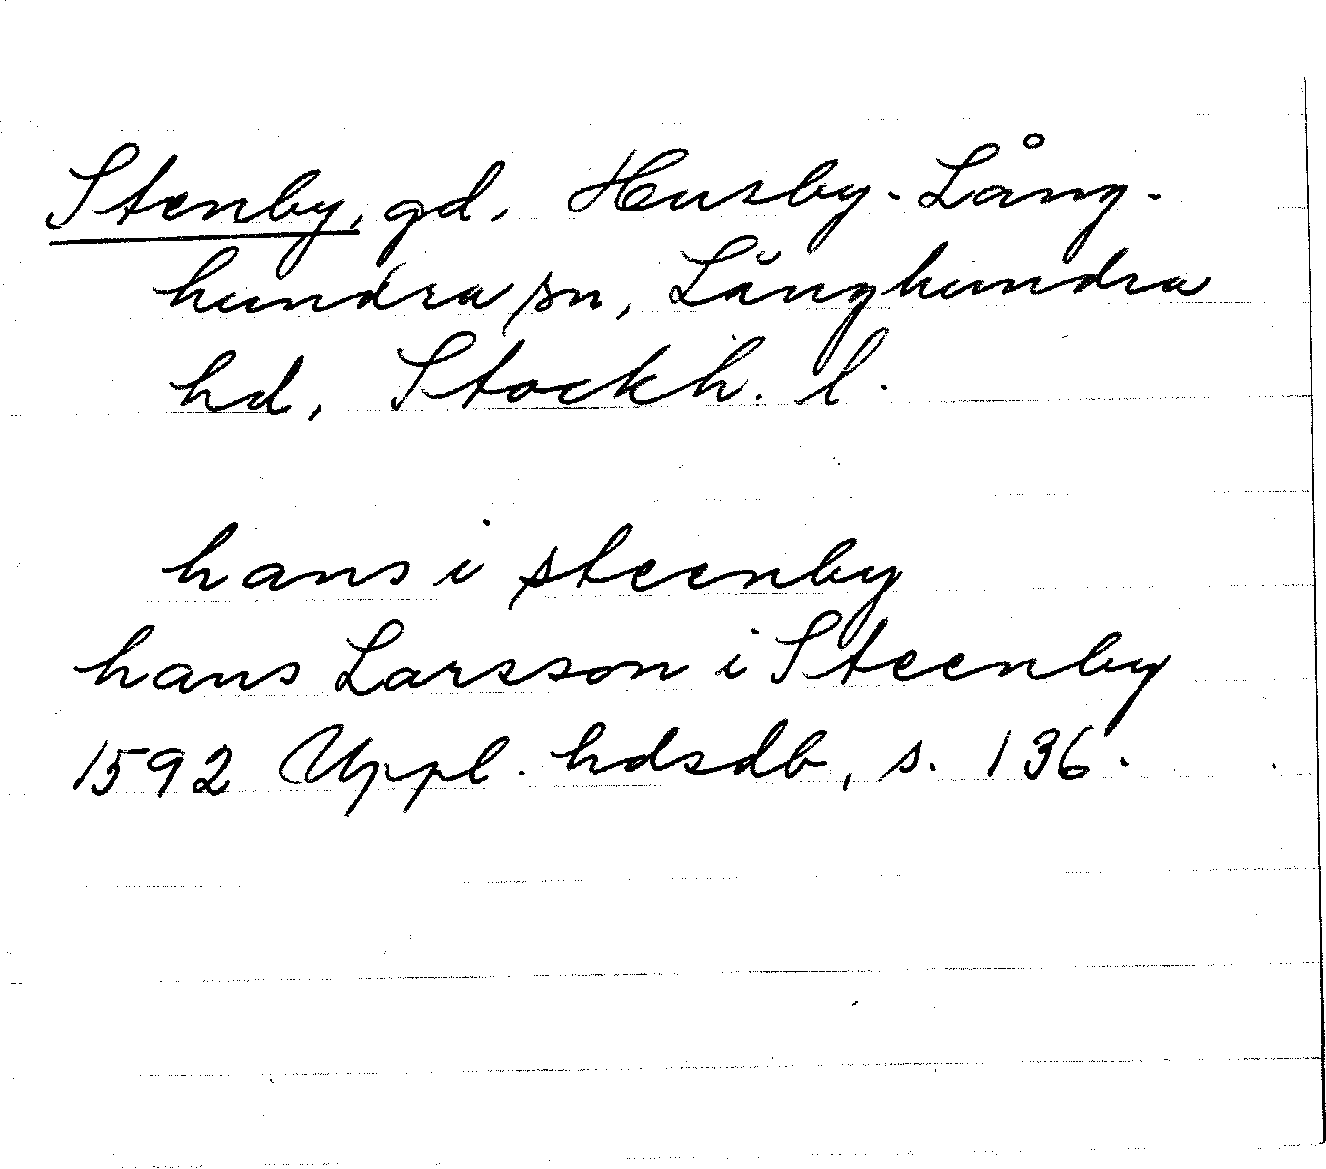 Stenby, gd. Husby-Lång-
hundra sn, Långhundra
hd, Stockh. l.
hans i steenby
hans Larsson i Steenby
1592 Uppl. hdsdb, s. 136.